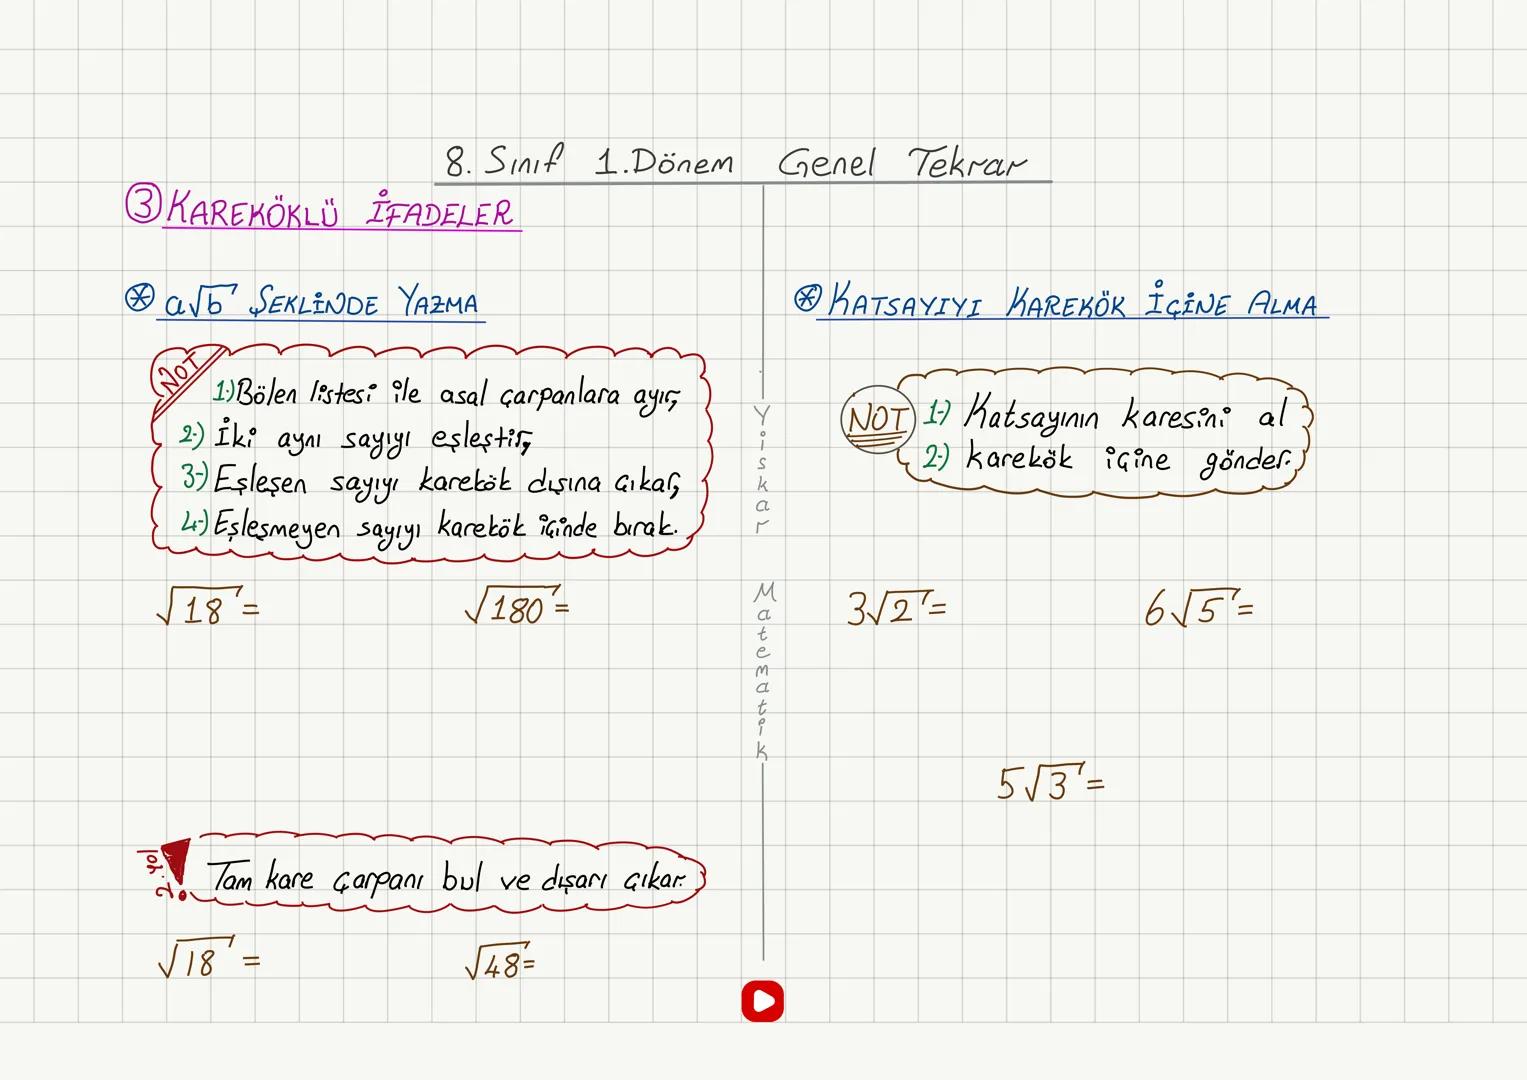 8. Sınıf 1.Dönem Genel Tekrar
3 KAREKÖKLÜ İFADELER
a√b ŞEKLİNDE YAZMA
NOT
1-)Bölen listesi ile asal çarpanlara ayır,
2-) İki aynı sayıyı eşleştir,
3-) Eşleşen sayıyı karekök dışına çıkar,
4-) Eşleşmeyen sayıyı karekök içinde bırak.
√18 =
√180 =
2. yol
Tam kare çarpanı bul ve dışarı çıkar.
√18 =
√48 =
Yiskar Matematik
KATSAYIYI KAREKÖK İÇİNE ALMA
NOT
1-) Katsayının karesini al
2-) karekök içine gönder.
3√2 =
6√5 =
5√3 =